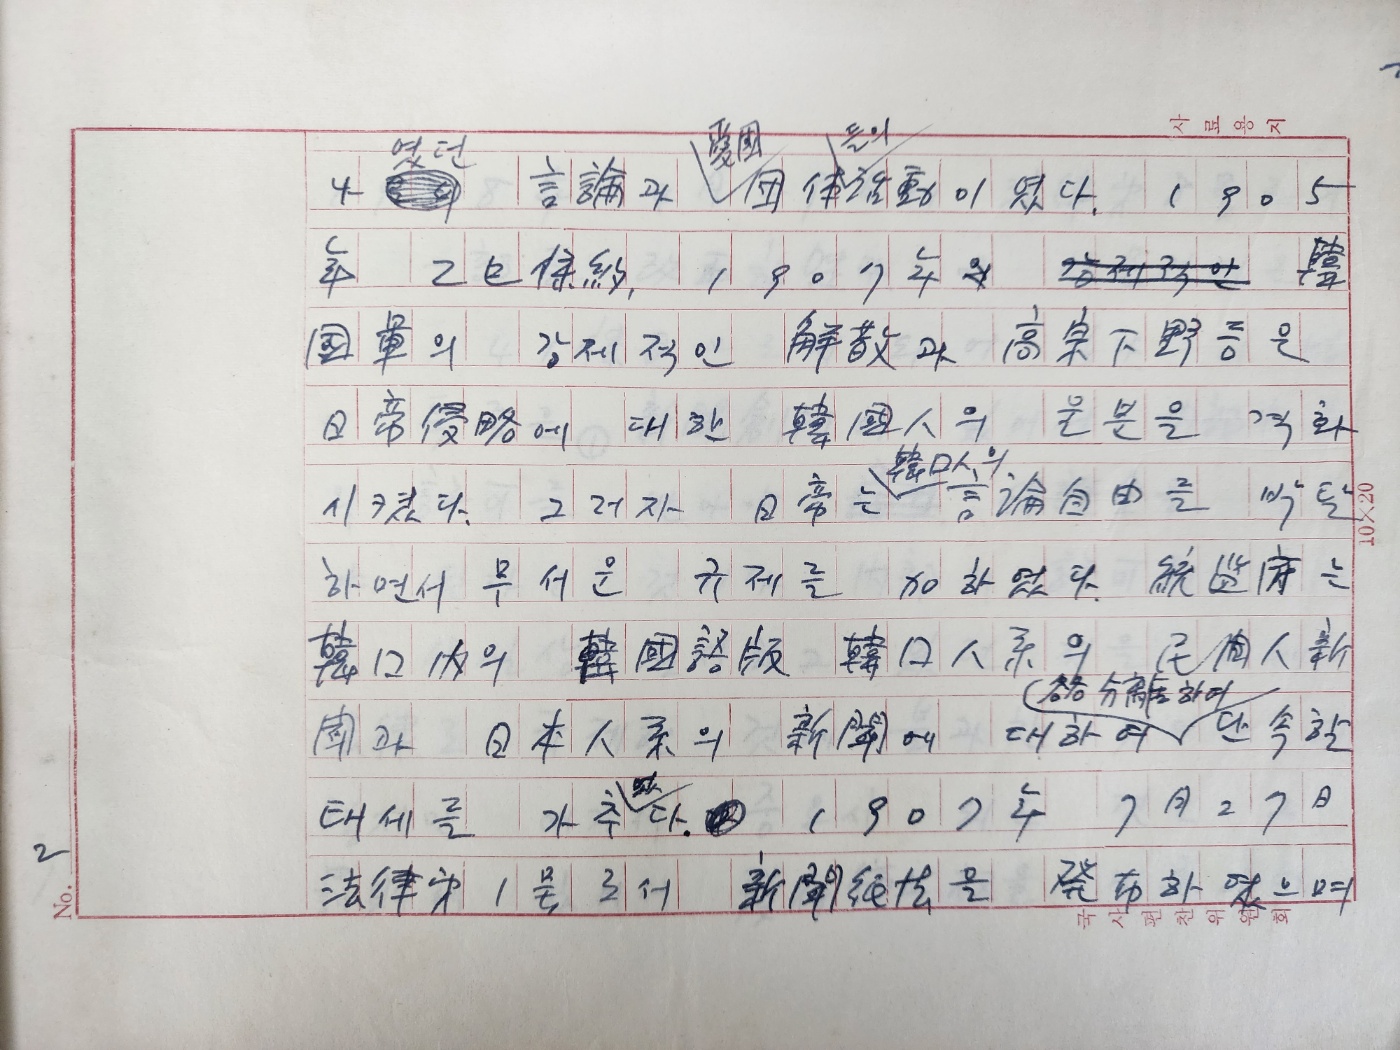 사료용지
였던 愛國 들의
4 言論과 団体活動이 였다. 1905
年 乙巳條約, 1907年의 강제적인 韓
國軍의 강제적인 解散과 高宗下野등은
日帝侵略에 대한 韓國人의 울분을 격화
시켰다. 그러자 日帝는 言論自由를 박탈
韓口人의
하면서 무서운 규제를 加하였다. 統監府는
韓口內의 韓國語版 韓口人系의 民間人新
各各 分離하여
聞과 日本人系의 新聞에 대하여 단속할
태세를 가추었다. 1907年 7月27日
法律第1号로서 新聞紙法을 發布하였으며
10×20
No. 2
국사편찬위원회